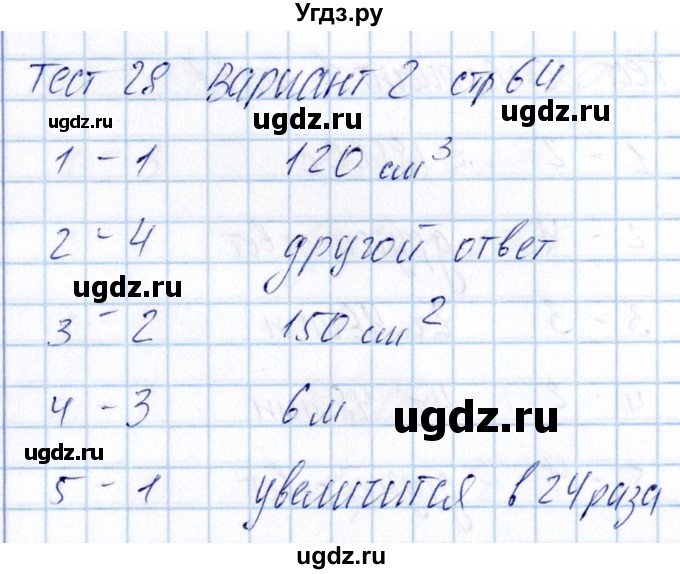 Угдз.ру
Тест 28 Вариант 2 стр 64
ugdz.ru
ugdz.ru
1 - 1 120 см³
2 - 4 другой ответ
ugdz.ru
3 - 2 150 см²
4 - 3 6 м
ugdz.ru
ugdz.ru
5 - 1 увеличится в 24 раза
ugdz.ru